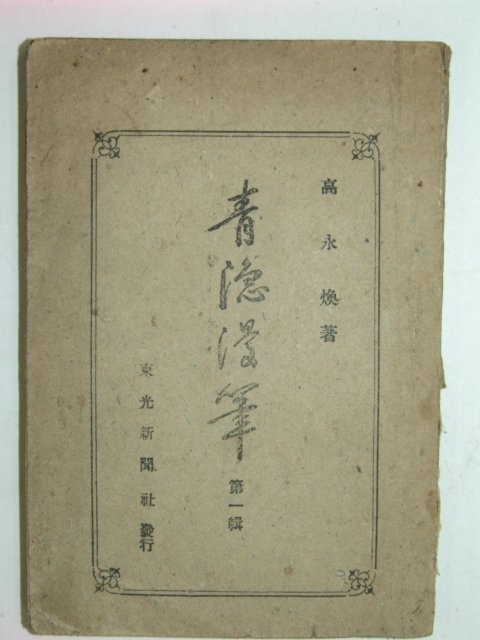 高永煥著
青隱漫筆
第一輯
東光新聞社發行